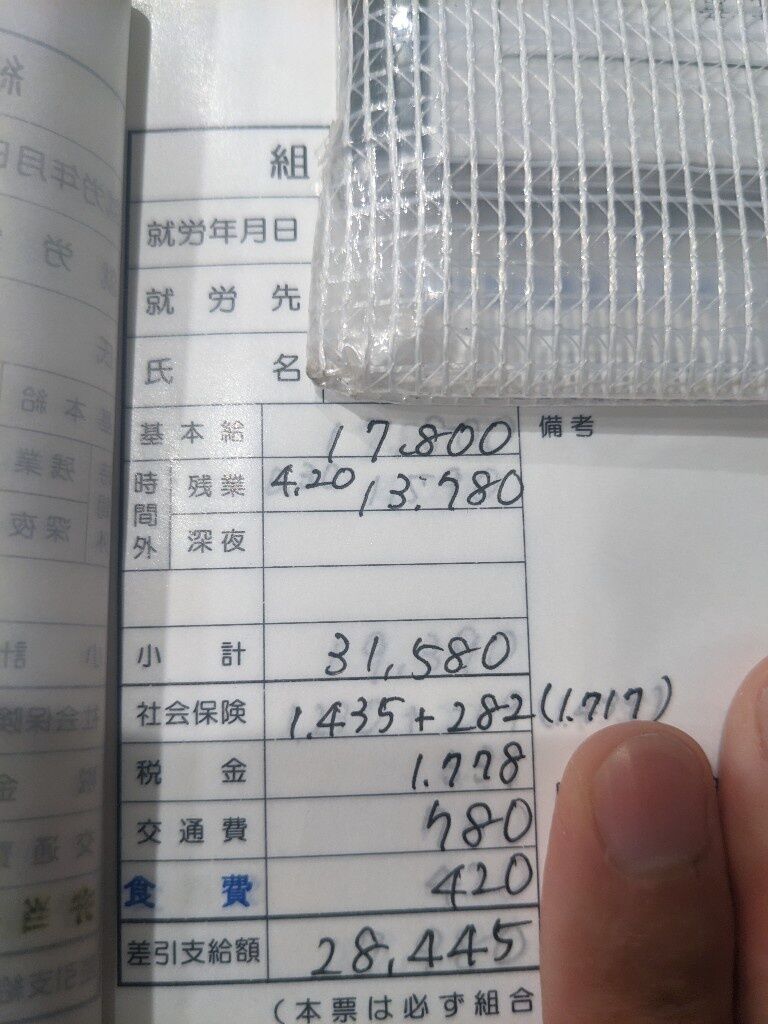 組
就労年月日
就労先
氏名
基本給 17.800 備考
時間外 残業 4.20 13.780
深夜
小計 31,580
社会保険 1.435+282(1.717)
税金 1.778
交通費 780
食費 420
差引支給額 28,445
(本票は必ず組合